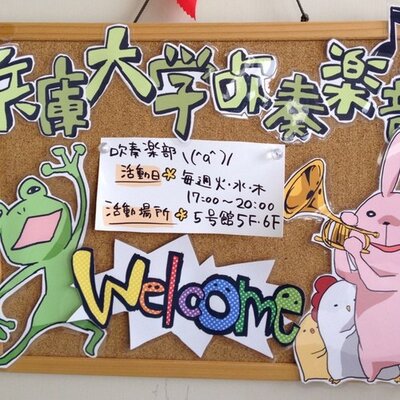 兵庫大学吹奏楽部
吹奏楽部 \(^o^)/
活動日 毎週火・水・木
17:00～20:00
活動場所 5号館5F・6F
Welcome